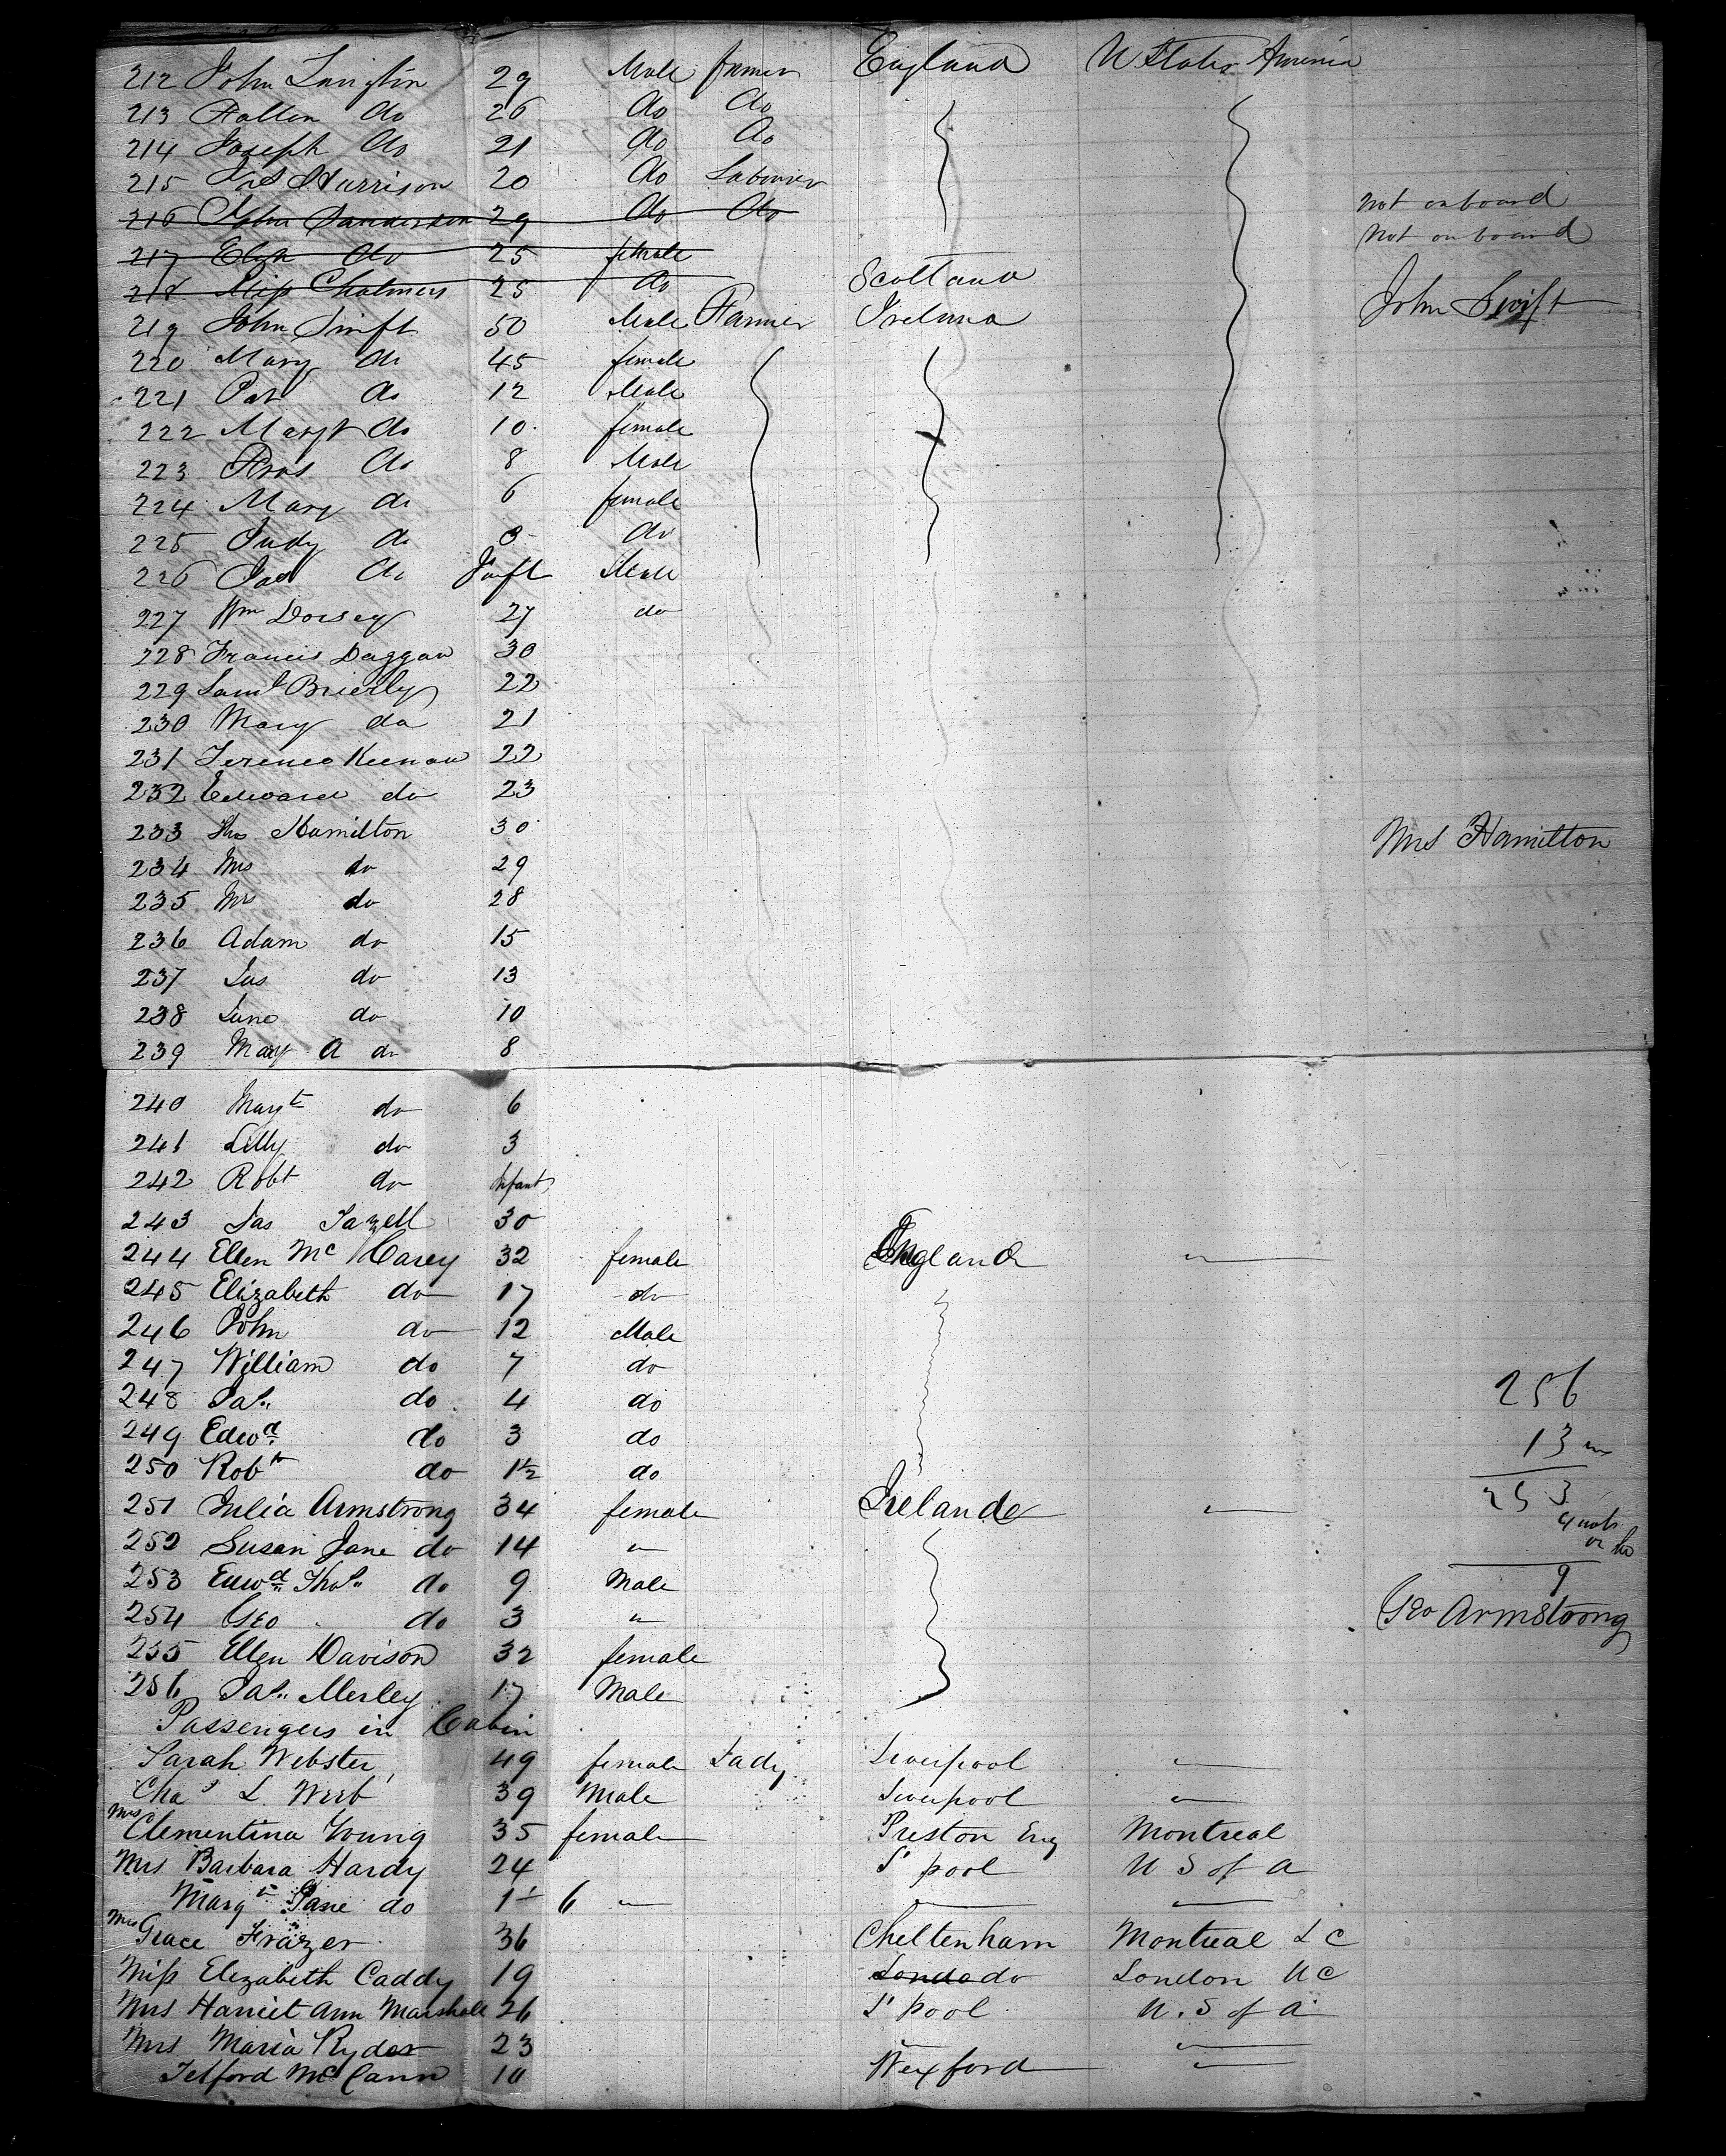 212 John 29 Male farmer England U States America
213 do 26 do do
214 Joseph do 21 do do
215 Jas Harrison 20 do Labourer
216 John Sanderson 29 do do not on board
217 Eliza do 25 female not on board
218 Miss Chalmers 25 do Scotland
219 John Swift 50 Male Farmer Ireland John Swift
220 Mary do 45 female
221 Pat do 12 Male
222 Margt do 10 female
223 do 8 Male
224 Mary do 6 female
225 Judy do 3 do
226 Jas do Inft Male
227 Wm Dorsey 27 do
228 Francis Duggan 30
229 Saml Brierly 22
230 Mary do 21
231 Terence Keenan 22
232 Edward do 23
233 Thos Hamilton 30 Mrs Hamilton
234 Mrs do 29
235 Mrs do 28
236 Adam do 15
237 Jas do 13
238 Jane do 10
239 Mary A do 8
240 Margt do 6
241 Lilly do 3
242 Robt do Infant
243 Jas Jazell 30
244 Ellen Mc Carey 32 female England "
245 Elizabeth do 17 do
246 John do 12 Male
247 William do 7 do
248 Jas. do 4 do
249 Edwd. do 3 do
250 Robt do 1½ do
251 Julia Armstrong 34 female Irelande "
252 Susan Jane do 14 "
253 Edwd. Thos. do 9 Male
254 Geo do 3 "
255 Ellen Davison 32 female
256 Jas. Merley 17 Male
256
13
253
4 not
9
Geo Armstrong
Passengers in Cabin
Sarah Webster 49 female Lady Liverpool "
Chas L. Webb 39 Male Liverpool "
Mrs Clementina Young 35 female Preston Eng Montreal
Mrs Barbara Hardy 24 L'pool U S of A
Margt Jane do 1 6 " " "
Mrs Grace Frazer 36 Cheltenham Montreal L C
Miss Elizabeth Caddy 19 Londo do London U C
Mrs Harriet Ann Marshall 26 L'pool U. S of A
Mrs Maria Ryder 23 " "
Telford McCann 10 Wexford "